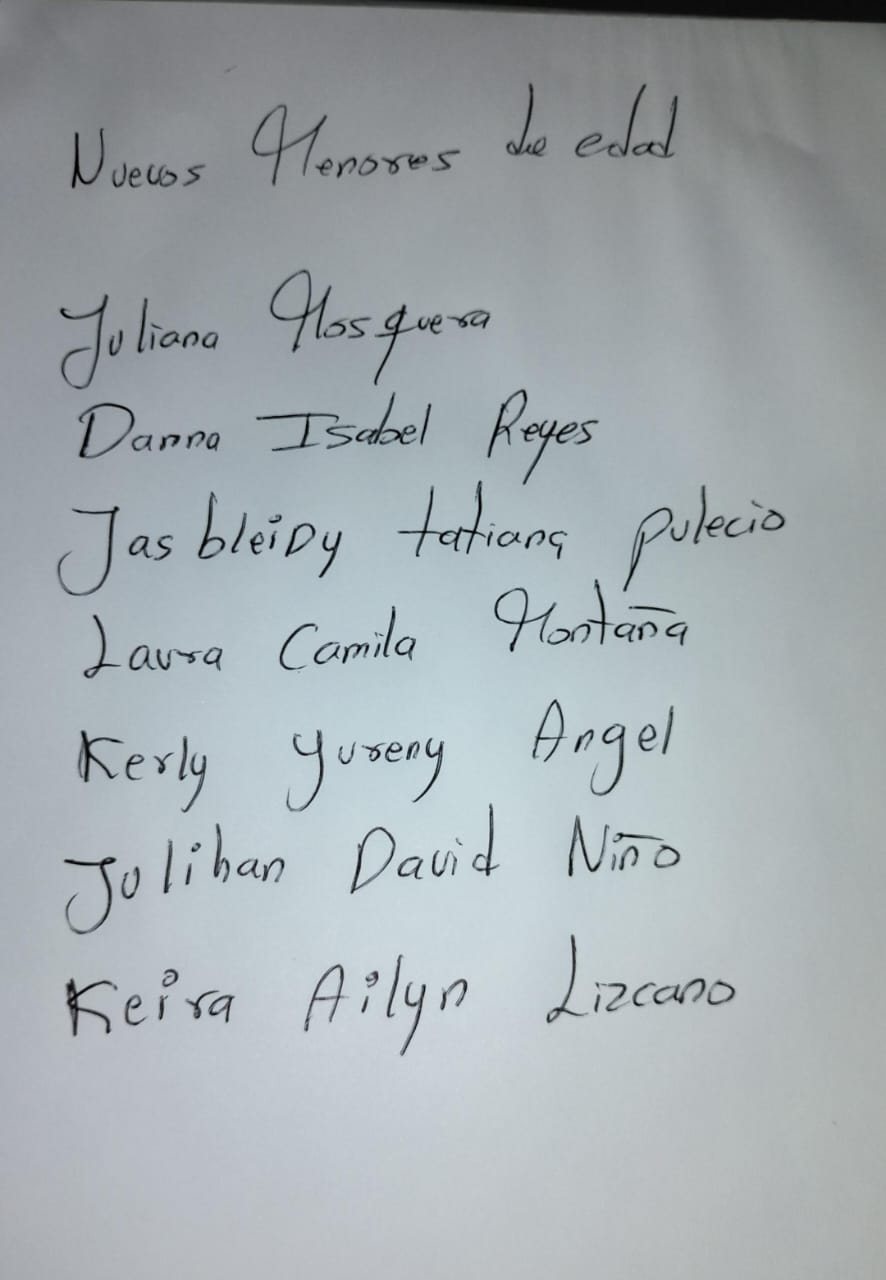 Nuevos Menores de edad
Juliana Mosquera
Danna Isabel Reyes
Jasbleidy tatiana pulecio
Laura Camila Montaña
Kerly Yureny Angel
Julihan David Niño
Keira Ailyn Lizcano